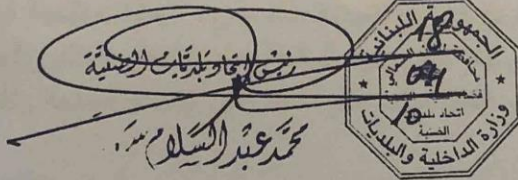 رئيس اتحاد بلديات الضنية
محمد عبد السلام
الجمهورية اللبنانية
اتحاد بلديات
الضنية
وزارة الداخلية والبلديات